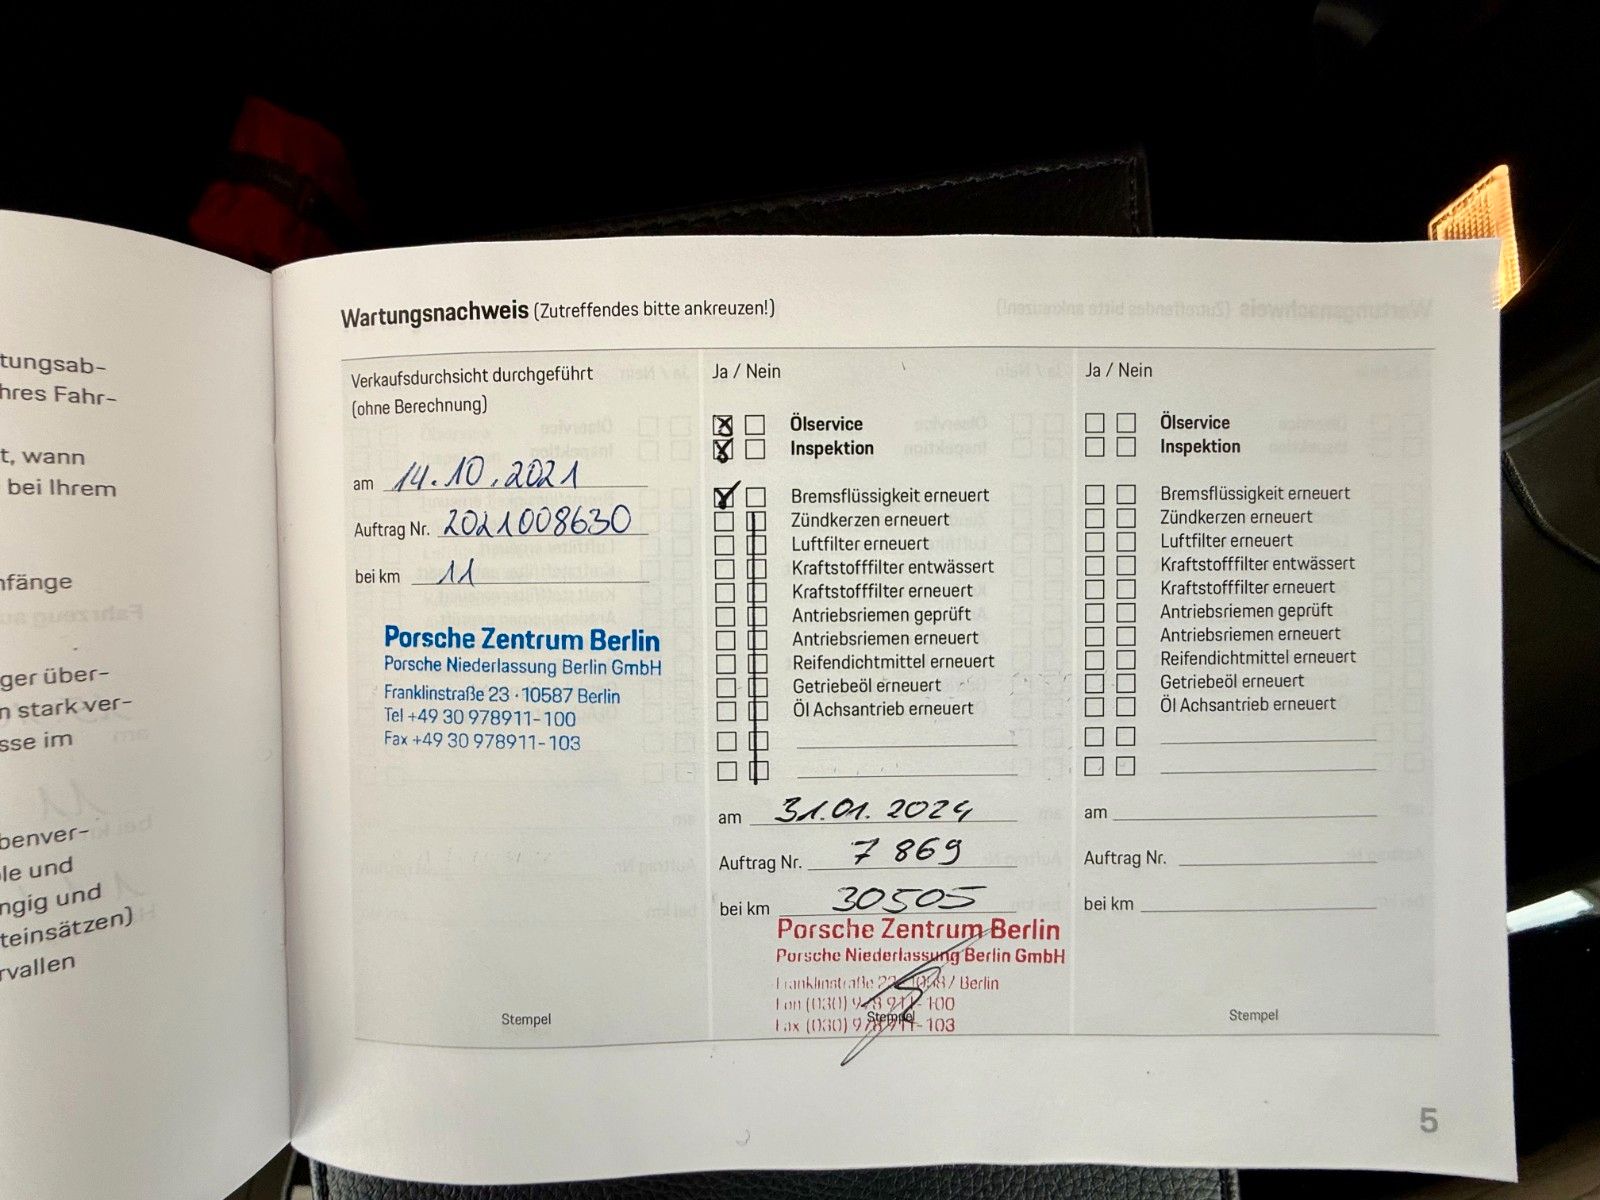 tungsab-
hres Fahr-
t, wann
bei Ihrem
nfänge
ger über-
n stark ver-
sse im
benver-
le und
ngig und
teinsätzen)
rvallen
Wartungsnachweis (Zutreffendes bitte ankreuzen!)
Verkaufsdurchsicht durchgeführt
(ohne Berechnung)
am 14.10.2021
Auftrag Nr. 2021008630
bei km 11
Porsche Zentrum Berlin
Porsche Niederlassung Berlin GmbH
Franklinstraße 23 · 10587 Berlin
Tel +49 30 978911-100
Fax +49 30 978911-103
Stempel
Ja / Nein
Ölservice
Inspektion
Bremsflüssigkeit erneuert
Zündkerzen erneuert
Luftfilter erneuert
Kraftstofffilter entwässert
Kraftstofffilter erneuert
Antriebsriemen geprüft
Antriebsriemen erneuert
Reifendichtmittel erneuert
Getriebeöl erneuert
Öl Achsantrieb erneuert
am 31.01.2024
Auftrag Nr. 7869
bei km 30505
Porsche Zentrum Berlin
Porsche Niederlassung Berlin GmbH
Franklinstraße 23 10587 Berlin
Fon (030) 978 911-100
Fax (030) 978 911-103
Stempel
Ja / Nein
Ölservice
Inspektion
Bremsflüssigkeit erneuert
Zündkerzen erneuert
Luftfilter erneuert
Kraftstofffilter entwässert
Kraftstofffilter erneuert
Antriebsriemen geprüft
Antriebsriemen erneuert
Reifendichtmittel erneuert
Getriebeöl erneuert
Öl Achsantrieb erneuert
am
Auftrag Nr.
bei km
Stempel
5